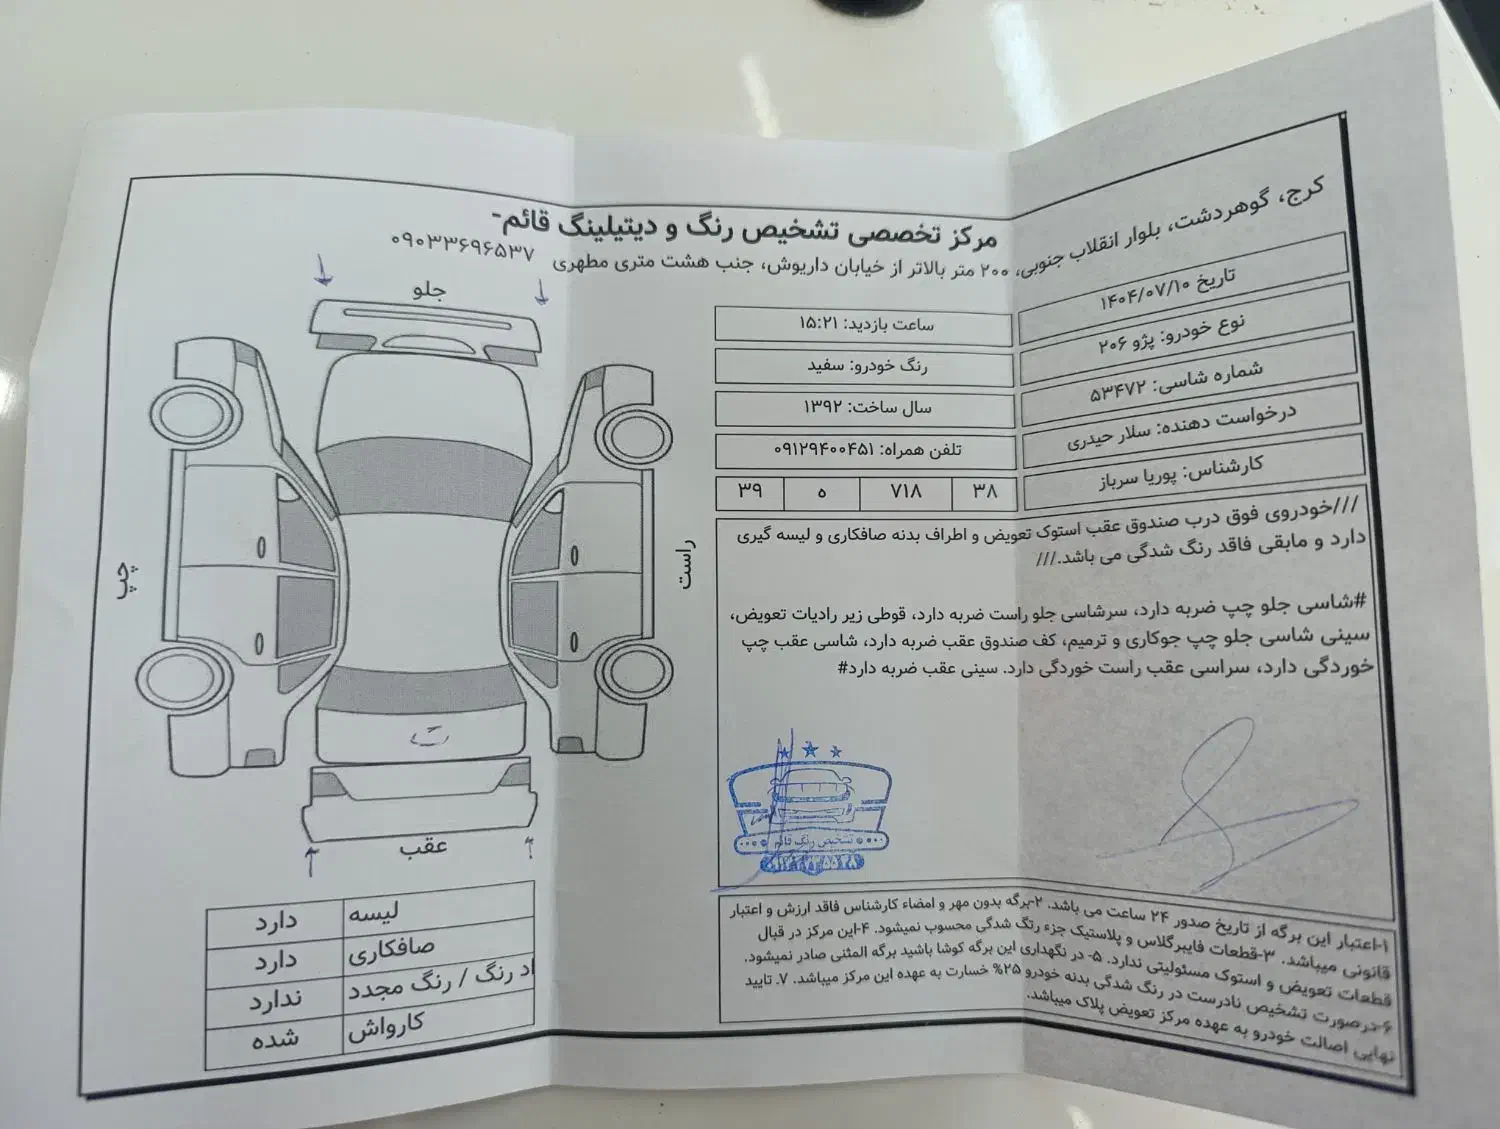 مرکز تخصصی تشخیص رنگ و دیتیلینگ قائم-
کرج، گوهردشت، بلوار انقلاب جنوبی، ۲۰۰ متر بالاتر از خیابان داریوش، جنب هشت متری مطهری
۰۹۰۳۳۶۹۶۵۳۷
تاریخ ۱۴۰۴/۰۷/۱۰
ساعت بازدید: ۱۵:۲۱
نوع خودرو: پژو ۲۰۶
رنگ خودرو: سفید
شماره شاسی: ۵۳۴۷۲
سال ساخت: ۱۳۹۲
درخواست دهنده: سلار حیدری
تلفن همراه: ۰۹۱۲۹۴۰۰۴۵۱
کارشناس: پوریا سرباز
۳۹ ه ۷۱۸ ۳۸
///خودروی فوق درب صندوق عقب استوک تعویض و اطراف بدنه صافکاری و لیسه گیری
دارد و مابقی فاقد رنگ شدگی می باشد.///
#شاسی جلو چپ ضربه دارد، سرشاسی جلو راست ضربه دارد، قوطی زیر رادیات تعویض،
سینی شاسی جلو چپ جوکاری و ترمیم، کف صندوق عقب ضربه دارد، شاسی عقب چپ
خوردگی دارد، سراسی عقب راست خوردگی دارد. سینی عقب ضربه دارد#
تشخیص رنگ قائم
۱-اعتبار این برگه از تاریخ صدور ۲۴ ساعت می باشد. ۲-برگه بدون مهر و امضاء کارشناس فاقد ارزش و اعتبار
قانونی میباشد. ۳-قطعات فایبرگلاس و پلاستیک جزء رنگ شدگی محسوب نمیشود. ۴-این مرکز در قبال
قطعات تعویض و استوک مسئولیتی ندارد. ۵- در نگهداری این برگه کوشا باشید برگه المثنی صادر نمیشود.
۶-درصورت تشخیص نادرست در رنگ شدگی بدنه خودرو ۲۵% خسارت به عهده این مرکز میباشد. ۷ـ تایید
نهایی اصالت خودرو به عهده مرکز تعویض پلاک میباشد.
جلو
راست
چپ
عقب
لیسه دارد
صافکاری دارد
اد رنگ / رنگ مجدد ندارد
کارواش شده